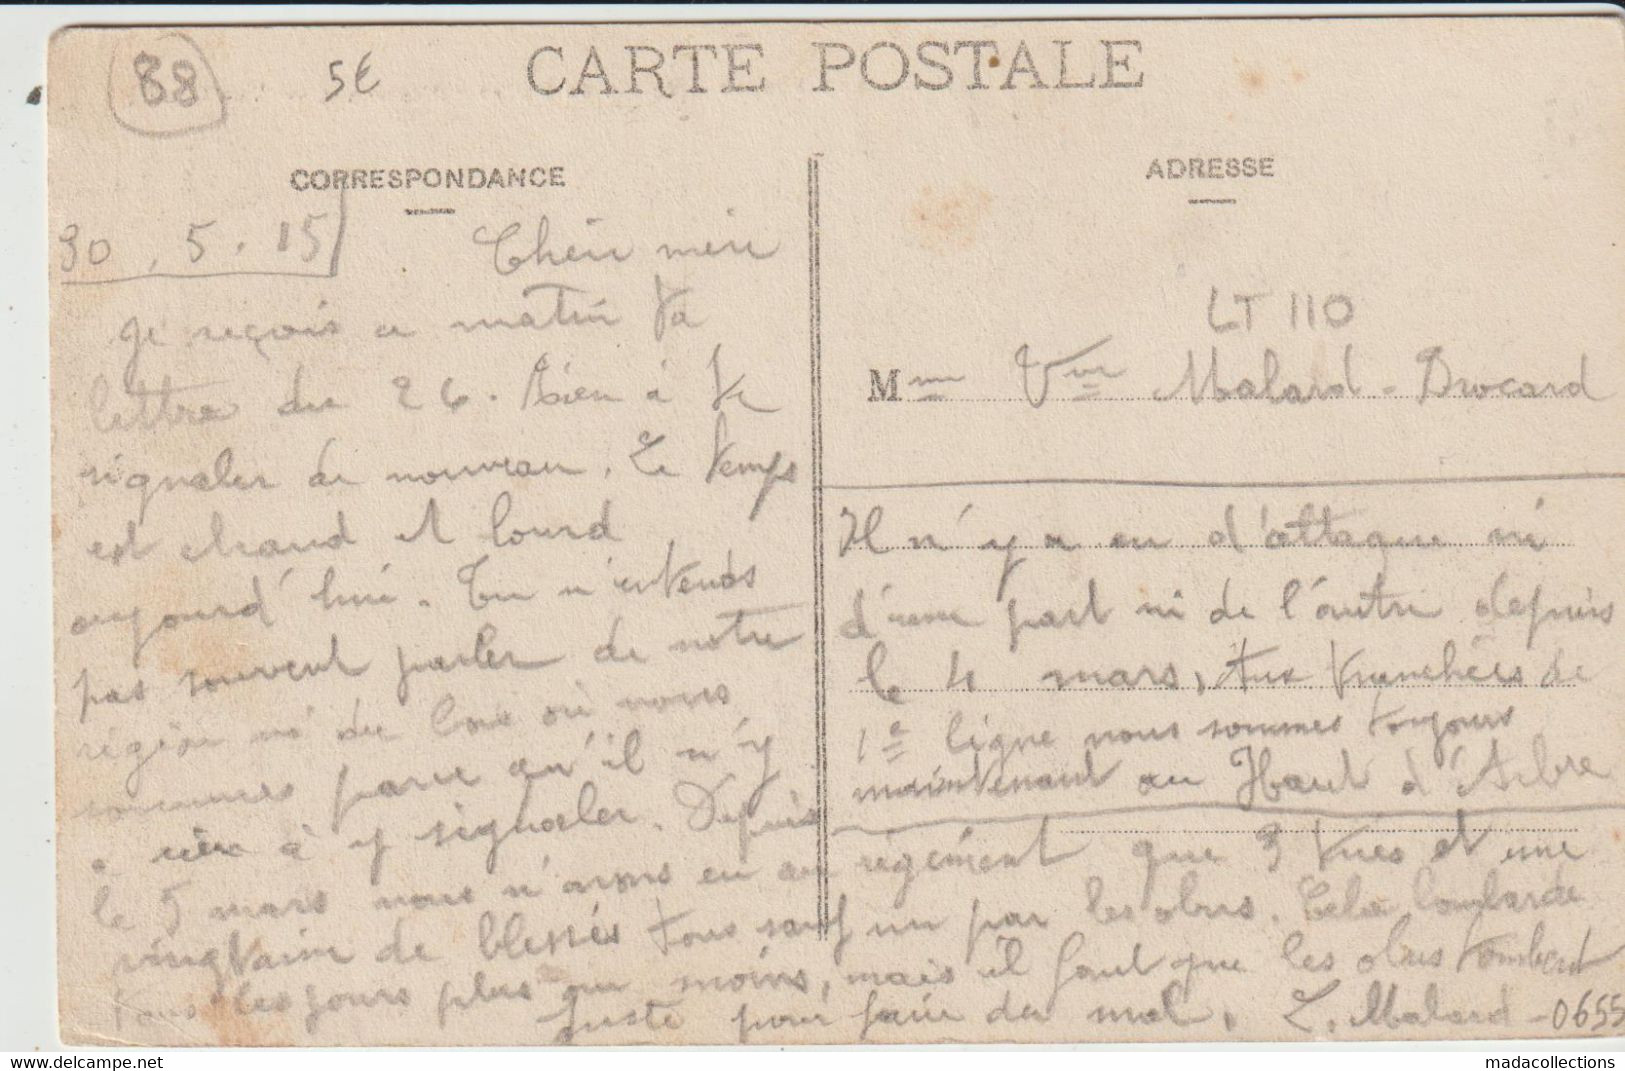 88
5€
CARTE POSTALE
CORRESPONDANCE
30.5.15
Chère mère
Je reçois ce matin ta
lettre du 26. Rien à te
signaler de nouveau. Le temps
est chaud et lourd
aujourd'hui. Tu n'entends
pas souvent parler de notre
région ni du lieu où nous
sommes parce qu'il n'y
a rien à y signaler. Depuis
le 5 mars nous n'avons eu au régiment que 3 tués et une
vingtaine de blessés tous sauf un par les obus. Cela bombarde
tous les jours plus ou moins, mais il faut que les obus tombent
juste pour faire du mal. L. Malard
ADRESSE
LT 110
Mme Vve Malard-Brocard
Il n'y a eu d'attaque ni
d'une part ni de l'autre depuis
le 4 mars, Aux tranchées de
1e ligne nous sommes toujours
maintenant au Haut d'Arbre
0655
madacollections